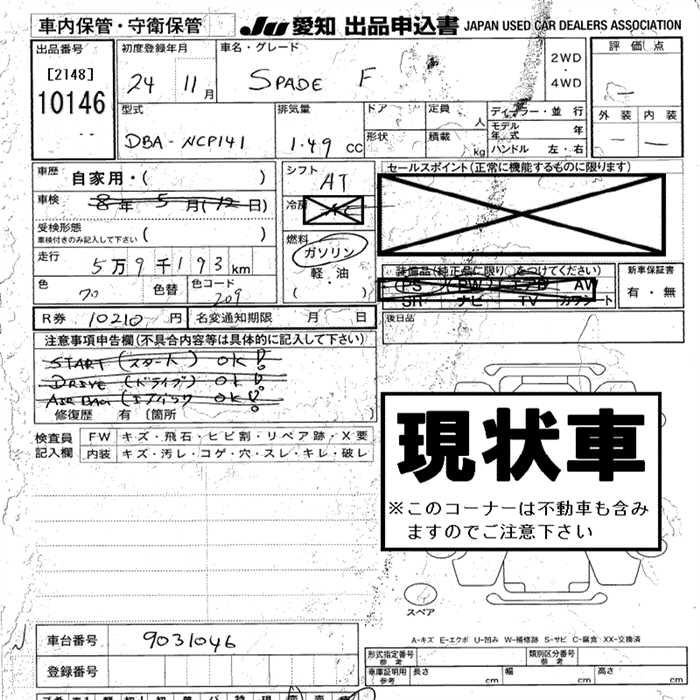 車内保管・守衛保管 JU 愛知 出品申込書 JAPAN USED CAR DEALERS ASSOCIATION
出品番号 初度登録年月 車名・グレード 2WD・4WD 評価点
[2148] 24 11月 SPADE F
10146 外装 内装
型式 排気量 ドア 定員 人 ディーラー・並行
DBA-NCP141 1.49 CC 形状 積載 kg モデル年式 年
ハンドル 左・右
車歴 自家用・( ) シフト AT セールスポイント(正常に機能するものに限ります)
車検 8年 5月(12日) 冷房
受検形態 ( )
車検付きのみ記入して下さい 燃料 ガソリン
走行 5万9千193km 軽・油 装備品(純正品に限り○をつけてください) 新車保証書
色 色替 色コード 209 ( ) PS PW エアB AV 有・無
SR ナビ TV カワシート
R券 10210円 名変通知期限 月 日 後日品
注意事項申告欄(不具合内容等は具体的に記入して下さい)
START (スタート) OK!
DRIVE (ドライブ) OK!
AIR BAG (エアバック) OK!
修復歴 有 〔箇所 〕
検査員記入欄 FW キズ・飛石・ヒビ割・リペア跡・X要
内装 キズ・汚レ・コゲ・穴・スレ・キレ・破レ
現状車
※このコーナーは不動車も含み
ますのでご注意下さい
スペア
A-キズ E-エクボ U-凹み W-補修跡 S-サビ C-腐食 XX-交換済
車台番号 9031046 形式指定番号 参考 類別区分番号 参考
登録番号 車庫証明用 参考 長さ cm 幅 cm 高さ cm